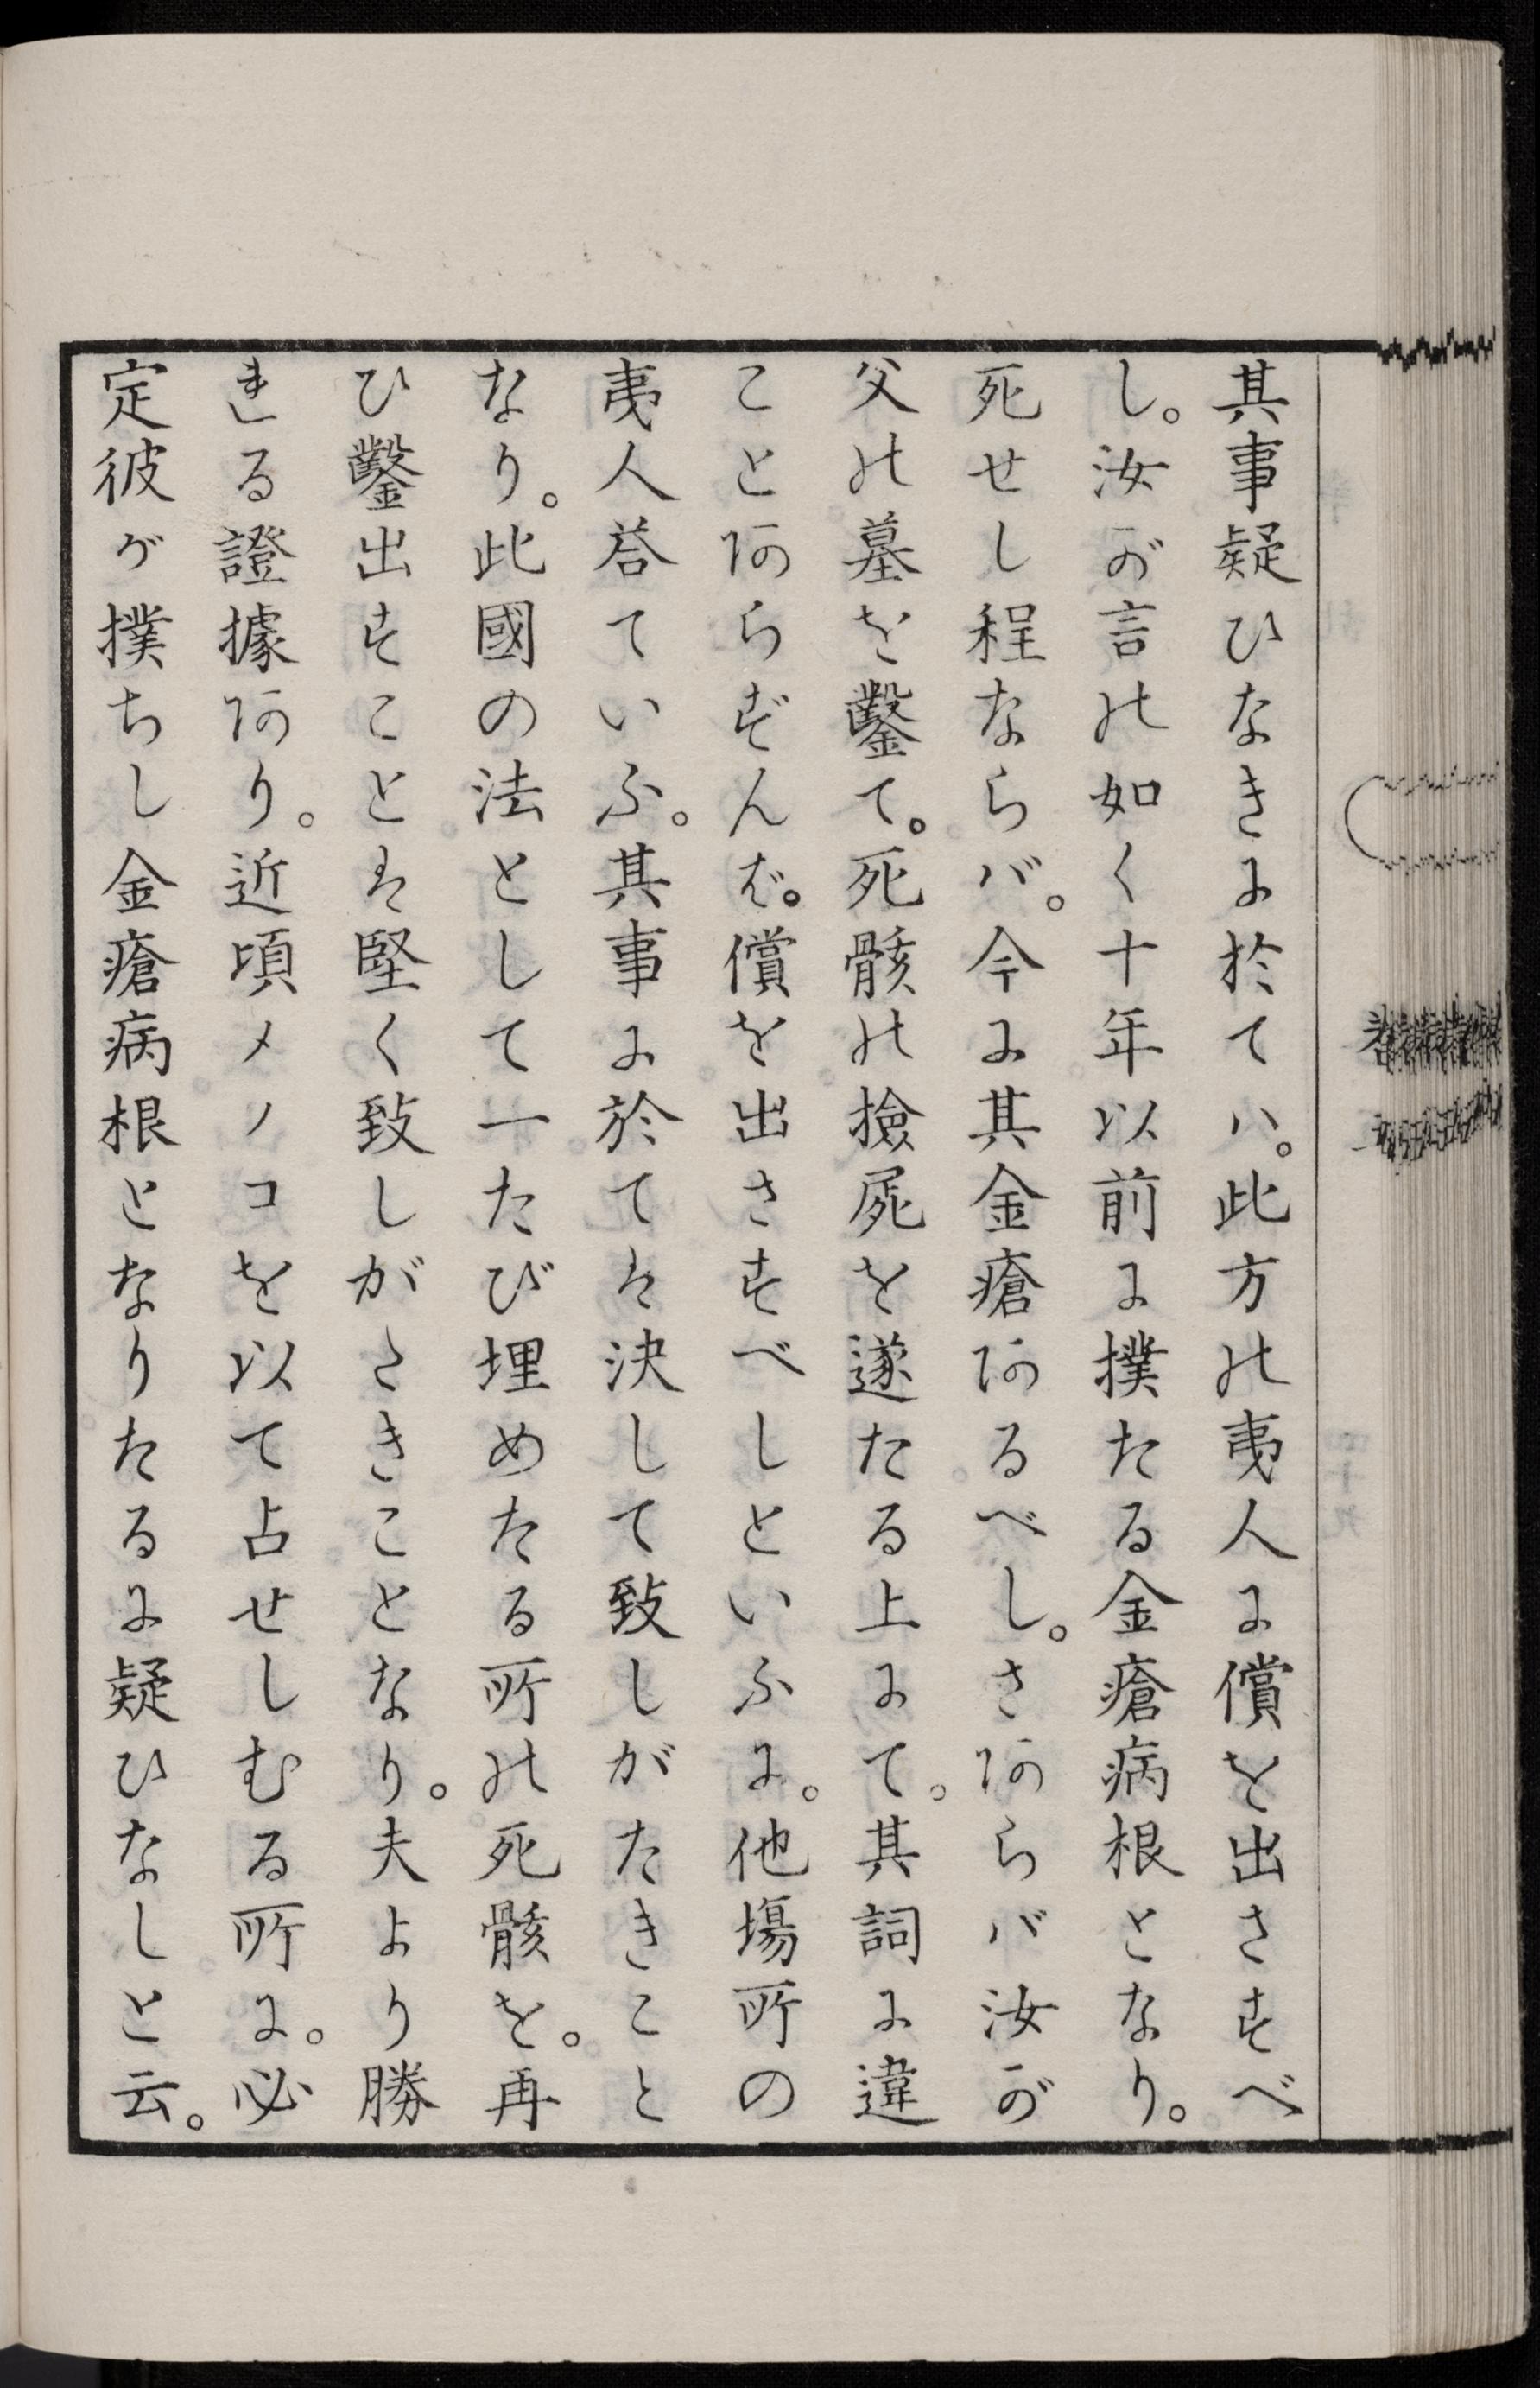 其事疑ひなきに於てハ。此方の夷人に償を出さすべ
し。汝が言の如く十年以前に撲たる金瘡病根となり。
死せし程ならバ。今に其金瘡あるべし。さあらバ汝が
父の墓を鑿て。死骸の撿屍を遂たる上にて。其詞に違
ことあらずんば。償を出さすべしといふに。他塲所の
夷人荅ていふ。其事に於ては決して致しがたきこと
なり。此國の法として一たび埋めたる所の死骸を。再
ひ鑿出すことは堅く致しがたきことなり。夫より勝
れる證據あり。近頃メノコを以て占せしむる所に。必
定彼が撲ちし金瘡病根となりたるに疑ひなしと云。